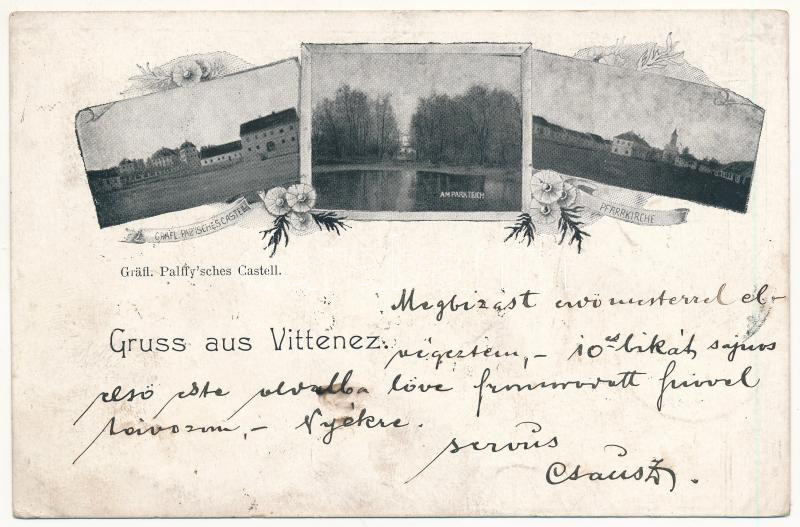 GRÄFL. PALFFYSCHES CASTELL
AM PARKTEICH
PFARRKIRCHE
Gräfl. Palffy'sches Castell.
Gruss aus Vittenez.
Megbizást el-
végeztem, – 10es bikát sajnos
első este oldalba löve szivvel
távozom, – Nyékre.
servus